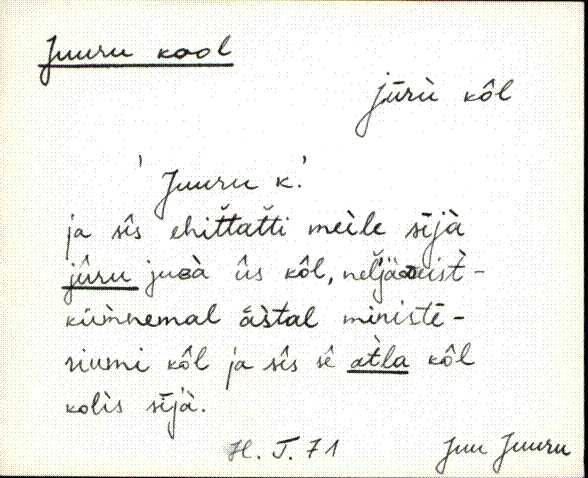 Juuru kool
jūrù kôl
'Juuru k.'
ja sîs ehiťťaťti meìle sījà
jûru juɛà ûs kôl, neljäᴅeist̀-
küm̀nemal ās̀tal ministē-
riumi kôl ja sîs sê at̀la kôl
kolìs sījà.
H. J. 71
Juu Juuru